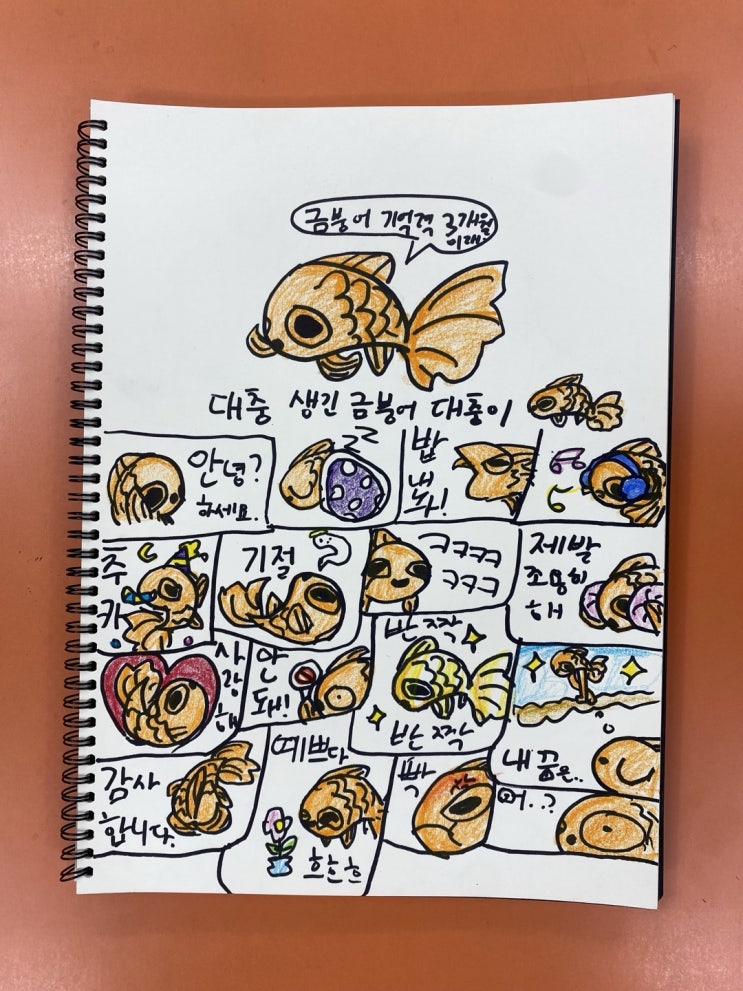 금붕어 기억력 3개월
이래
대충 생긴 금붕어 대충이
안녕?
하세요.
zzz
밥
내
놔!
추
카
기절
ㅋㅋㅋㅋ
ㅋㅋㅋ
제발
조용히
해
사
랑
해
안
돼!
반짝
반짝
내 꿈은..
감사
합니다.
예쁘다
흐흐흐
빡
어..?